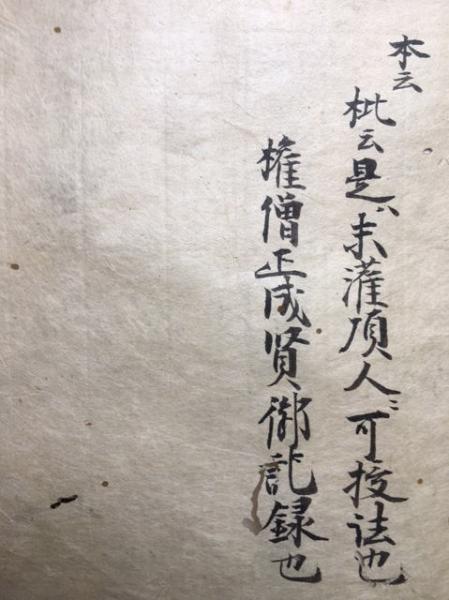 本云
枇云是ハ未灌頂人ニ可授法也
権僧正成賢御記録也